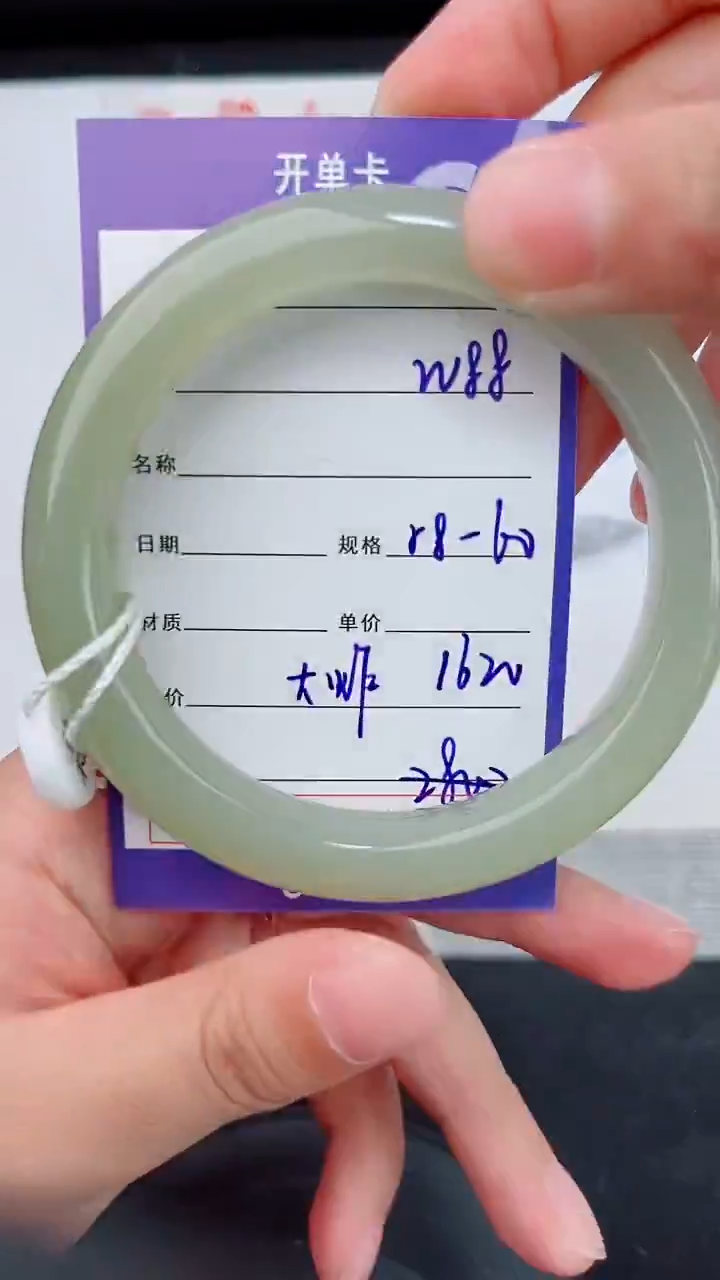 开单卡
W88
名称
日期 规格 58-60
材质 单价
价 大 1620